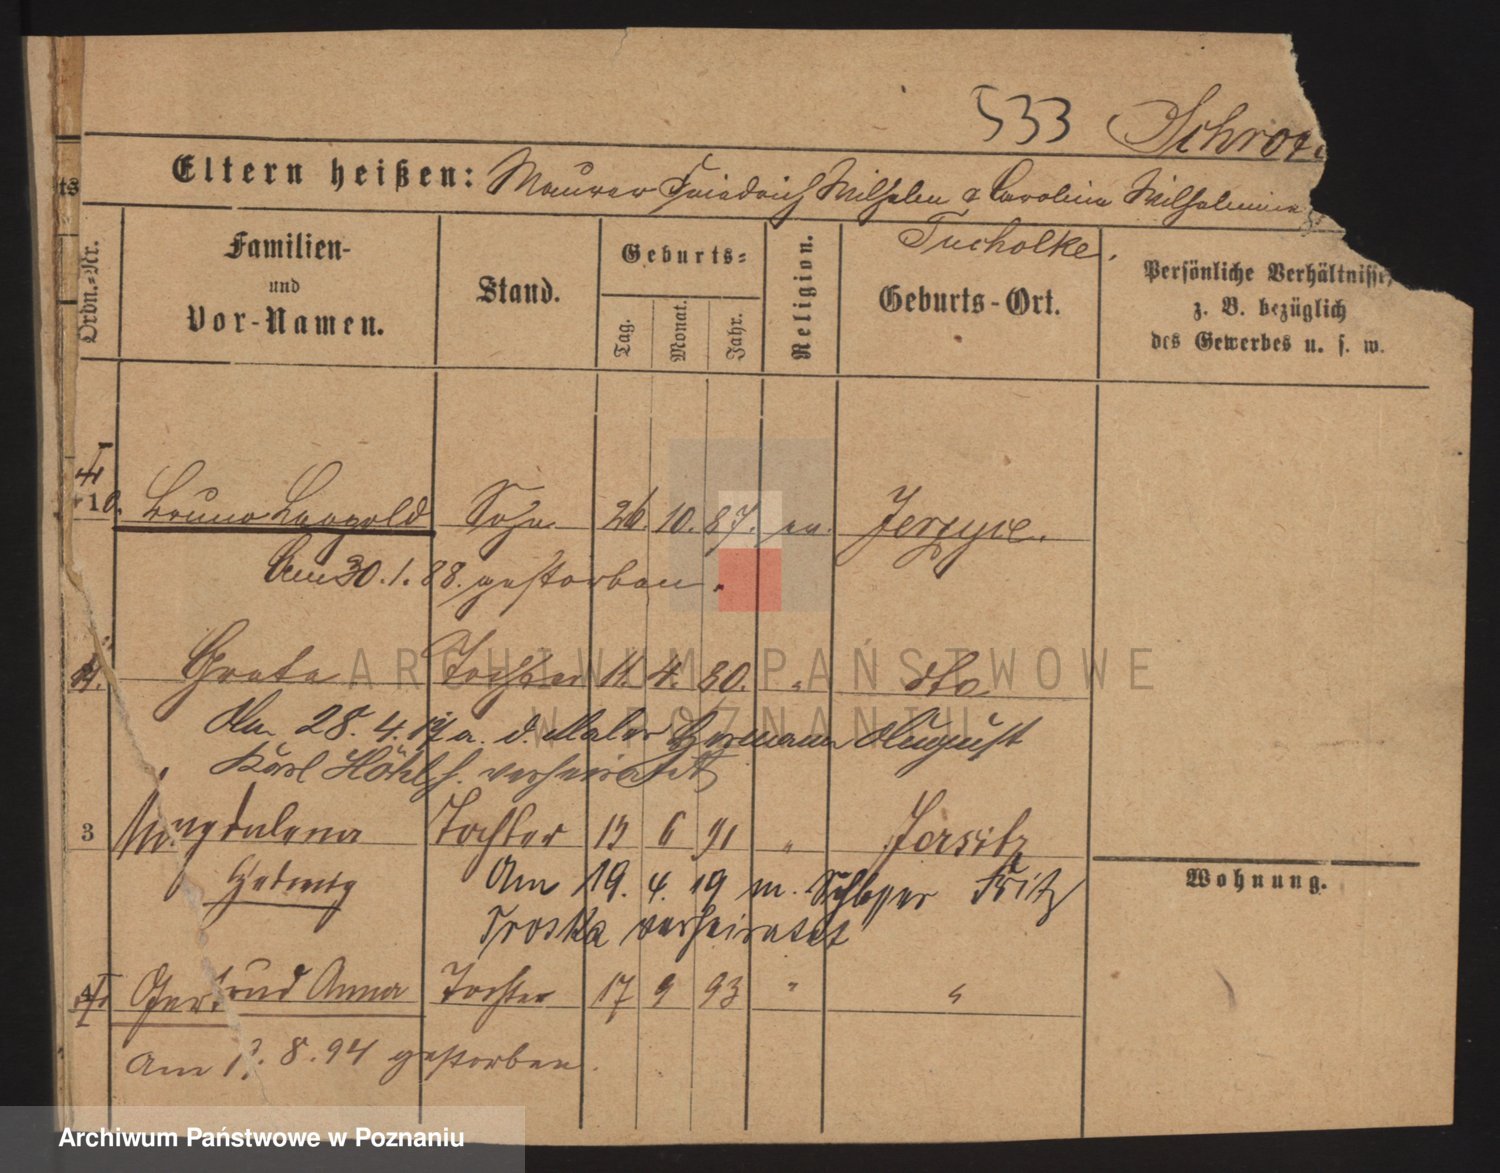 533
Eltern heißen: Maurer Friedrich Wilhelm & Carolina Wilhelmine
Tucholke.
Ordn.-Nr.
Familien-
und
Vor-Namen.
Stand.
Geburts-
Tag.
Monat.
Jahr.
Religion.
Geburts-Ort.
Persönliche Verhältnisse,
z. B. bezüglich
des Gewerbes u. s. w.
10. Bruno Leopold Sohn 26. 10. 87. ev. Jerzyce.
Am 30.1.88. gestorben.
Greta Tochter 11. 4. 90. " dto
Am 28. 4. a. d. Maler Hermann August
Karl verheiratet
3 Magdalena Tochter 13 6 91 " Jersitz
Hedwig Am 19. 4. 19 m. Fritz
Troska verheiratet
Wohnung.
Gertrud Anna Tochter 17 9 93 " "
am 8.94 gestorben.
ARCHIWUM PAŃSTWOWE
W POZNANIU
Archiwum Państwowe w Poznaniu